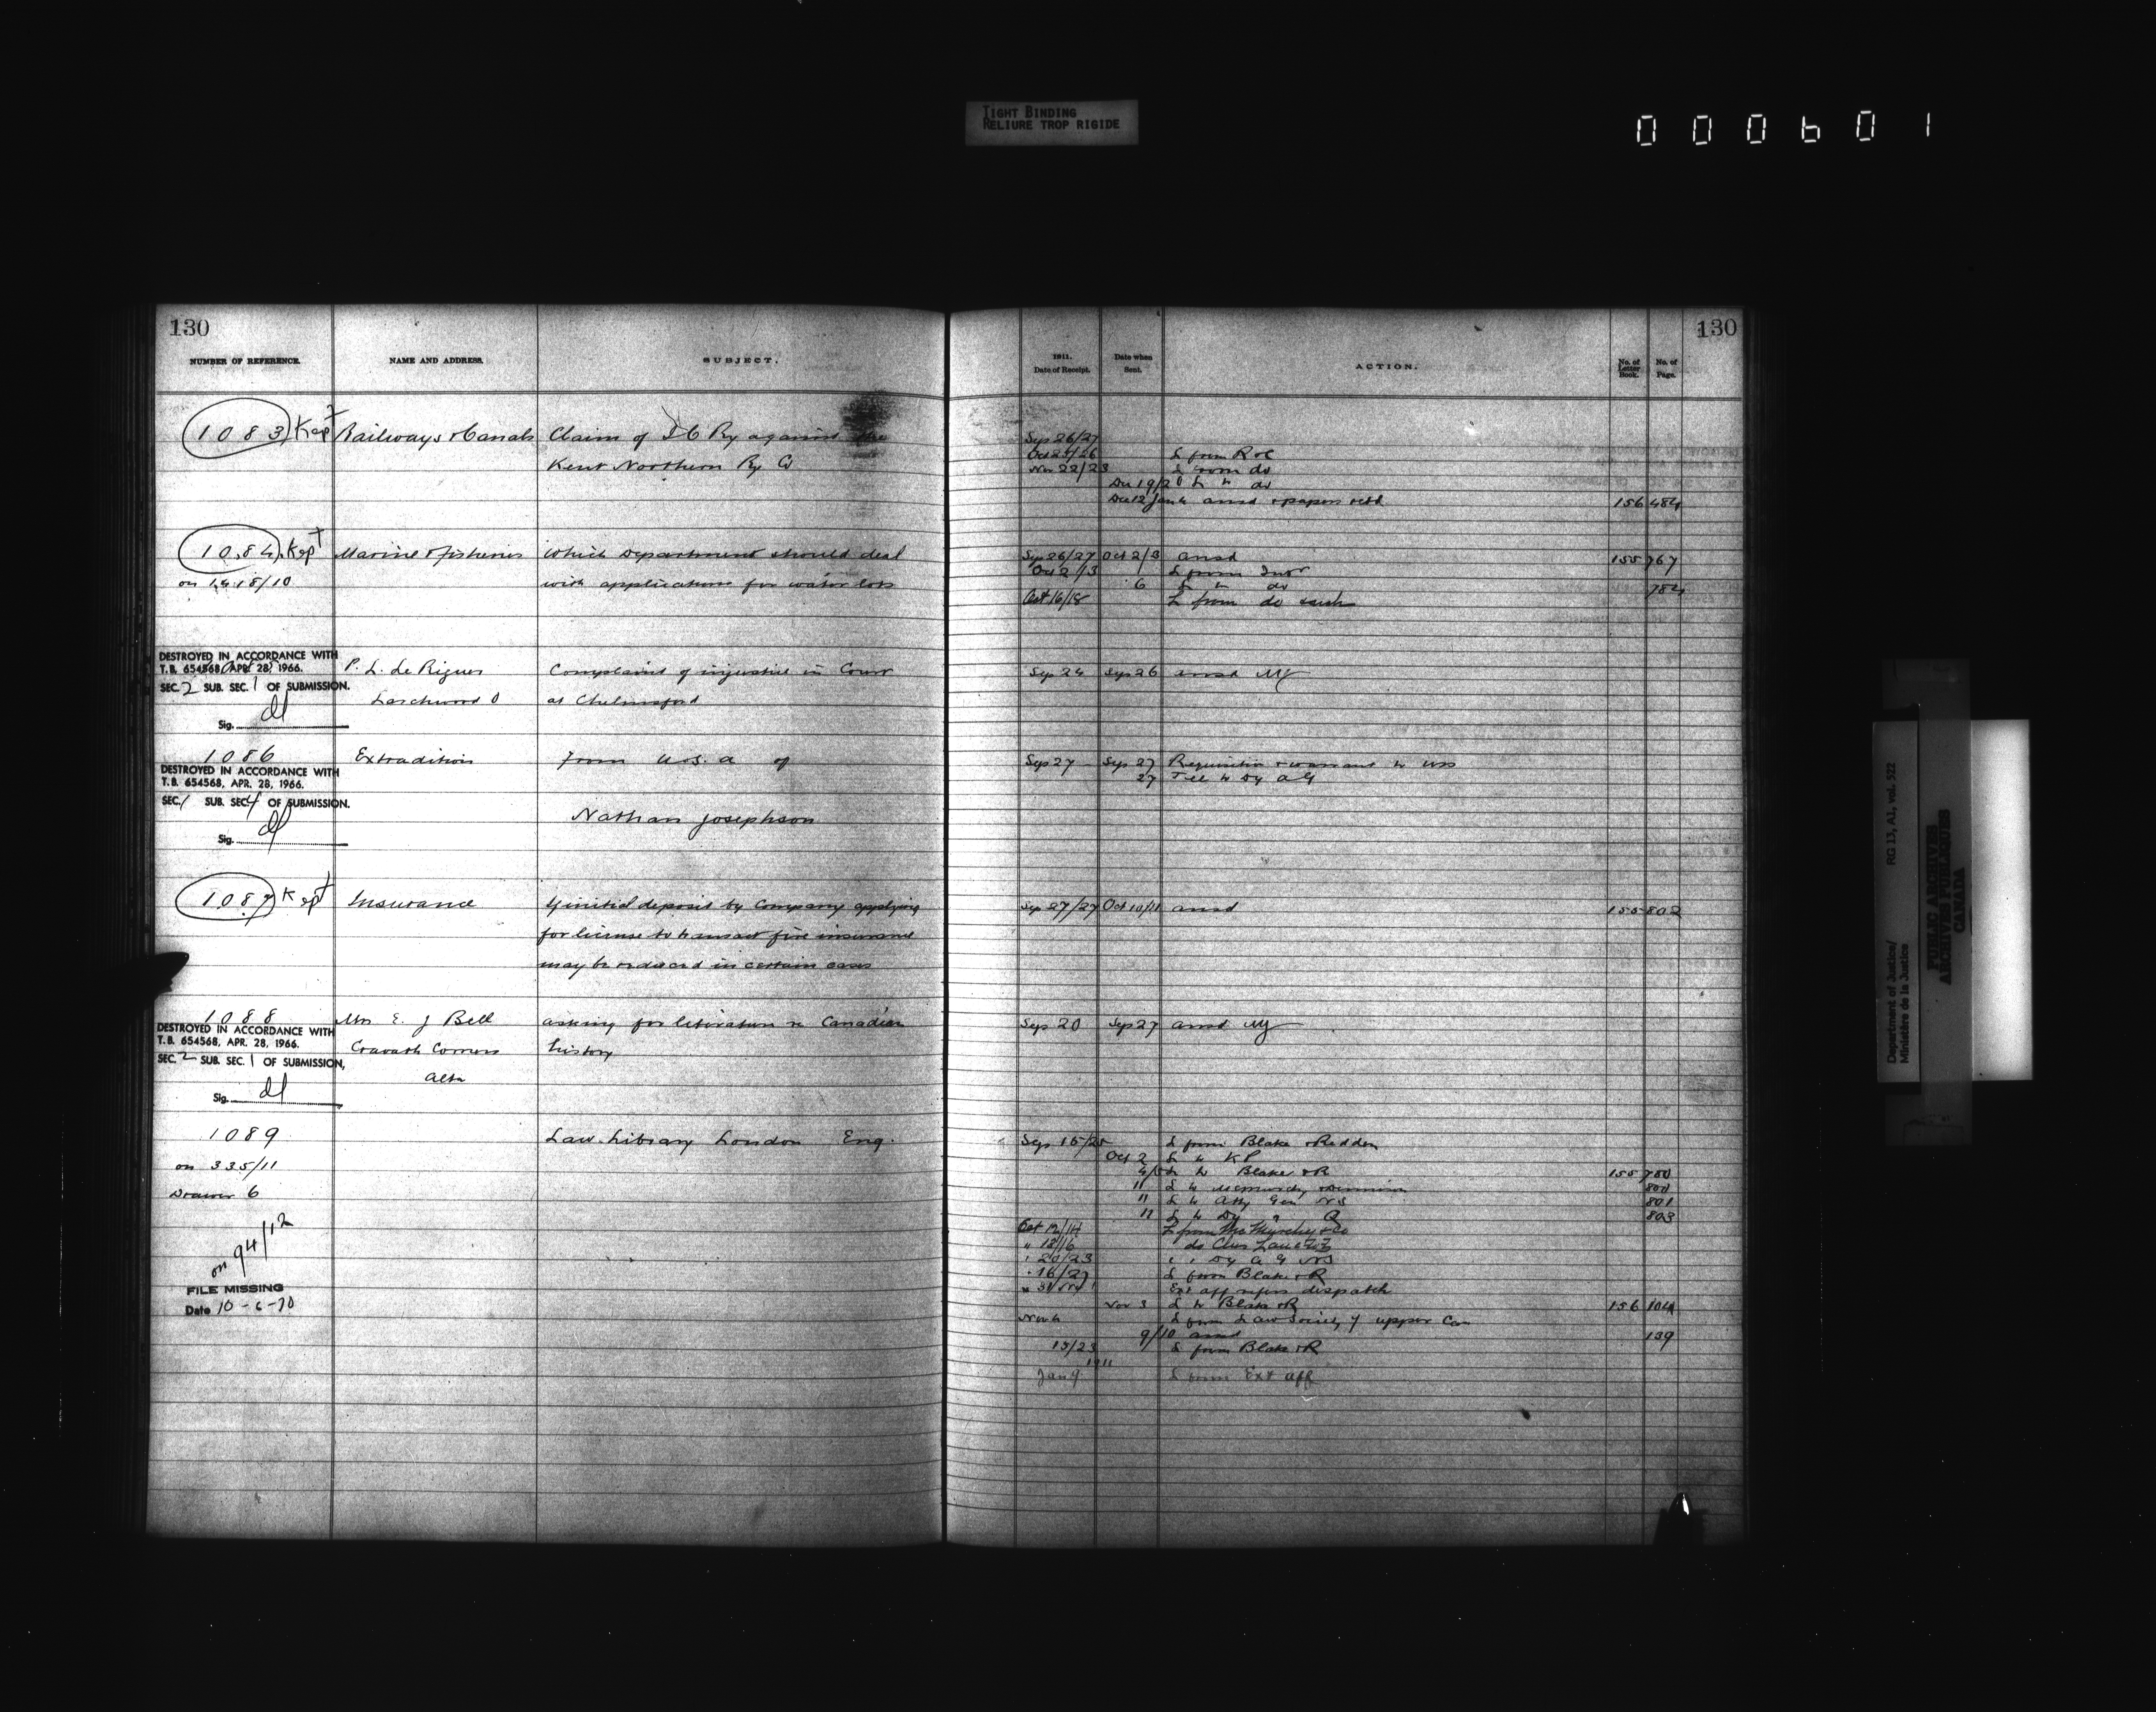 TIGHT BINDING
RELIURE TROP RIGIDE
000601
130
NUMBER OF REFERENCE. NAME AND ADDRESS. SUBJECT.
1083 Kept Railways & Canals Claim of I C Ry against the
Kent Northern Ry Co
1084 Kept Marine & Fisheries Which Department should deal
on 1418/10 with applications for water lots
DESTROYED IN ACCORDANCE WITH
T.B. 654568, APR. 28, 1966.
SEC. 2 SUB. SEC. 1 OF SUBMISSION.
Sig.
P. L. de Rigues Complaint of injustice in Court
Larchwood O at Chelmsford
1086 Extradition from U.S.A of
DESTROYED IN ACCORDANCE WITH
T.B. 654568, APR. 28, 1966.
SEC. 1 SUB. SEC. 4 OF SUBMISSION.
Nathan Josephson
Sig.
1087 Kept Insurance If initial deposit by Company applying
for license to transact fire insurance
may be reduced in certain cases
1088 Mrs E. J Bell asking for literature re Canadian
DESTROYED IN ACCORDANCE WITH
T.B. 654568, APR. 28, 1966.
Cravath Corners history
SEC. 2 SUB. SEC. 1 OF SUBMISSION,
Alta
Sig.
1089 Law Library London Eng.
on 335/11
Drawer 6
on 94/12
FILE MISSING
Date 10-6-70
130
1911. Date of Receipt. Date when Sent. ACTION. No. of Letter Book. No. of Page.
Sep 26/27
Oct 25/26 L from R & C
Nov 22/23 L from do
Dec 19/20 L to do
Dec 12 Jan 4 ansd & papers retd 156 484
Sep 26/27 Oct 2/3 ansd 155 767
Oct 2/3 L from Intr
6 L to do 784
Oct 16/18 L from do
Sep 24 Sep 26 ansd MJ
Sep 27 Sep 27 Requisition & warrant to USS
27 Tel to Dy A G
Sep 27/27 Oct 10/11 ansd 155 802
Sep 20 Sep 27 ansd MJ
Sep 15/25 L from Blake & Redden
Oct 2 L to KP
4/5 L to Blake & R 155 780
11 L to 800
11 L to Atty Gen N S 801
11 L to Dy " Q 803
Oct 12/14 L from McMurchy & Co
" 13/16 do Chas Lanctot
" 20/23 " " Dy A G NS
" 16/27 L from Blake & R
" 31 Nov 1 Ext aff refers dispatch
Nov 3 L to Blake & R 156 104
Nov 6 L from Law Society of Upper Can
9/10 ansd 139
13/23 L from Blake & R
1911
Jan 9 L from Ext aff
Department of Justice/
Ministère de la Justice
RG 13, A1, vol. 522
PUBLIC ARCHIVES
ARCHIVES PUBLIQUES
CANADA